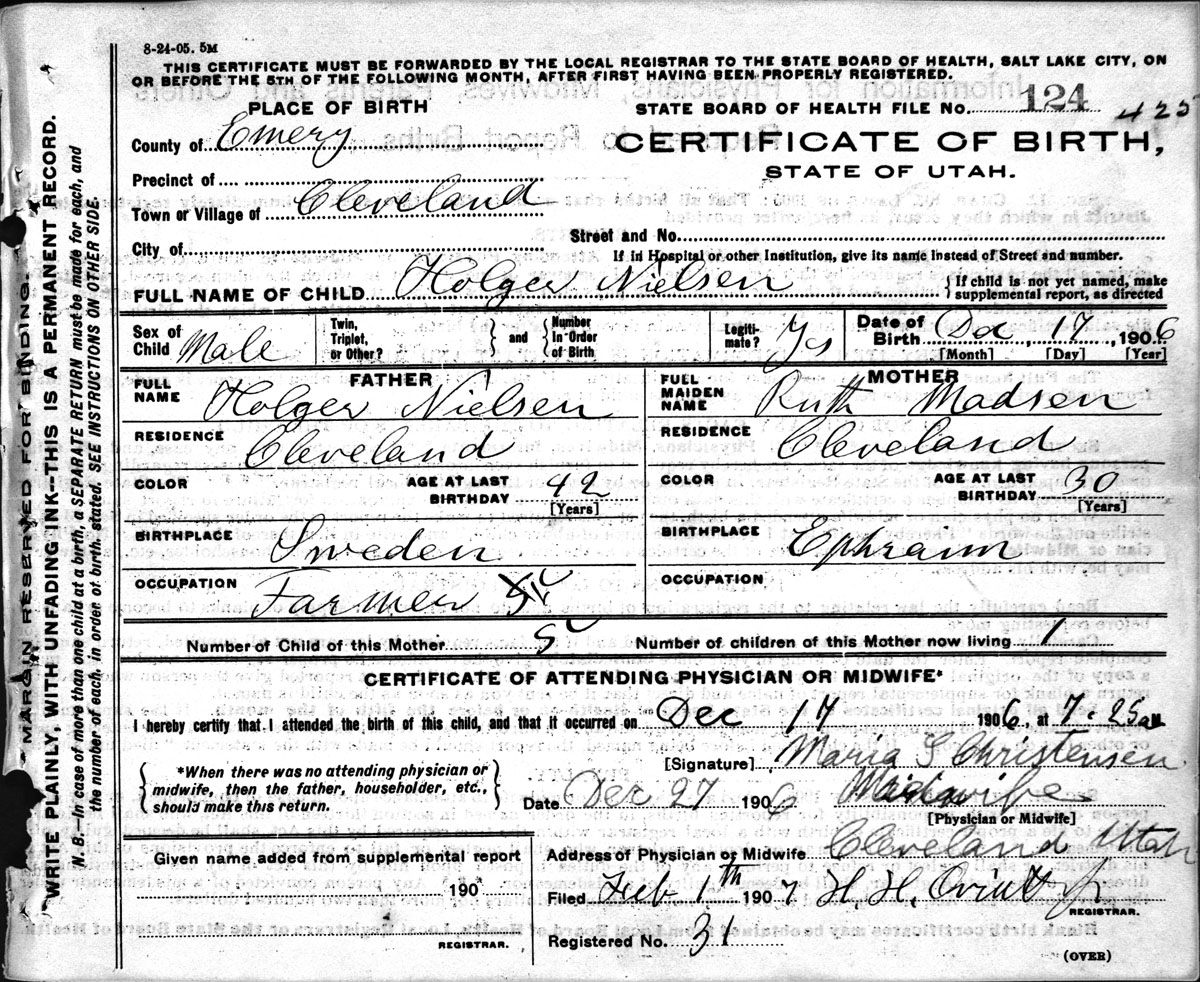 8-24-05. 5M
THIS CERTIFICATE MUST BE FORWARDED BY THE LOCAL REGISTRAR TO THE STATE BOARD OF HEALTH, SALT LAKE CITY, ON
OR BEFORE THE 5TH OF THE FOLLOWING MONTH, AFTER FIRST HAVING BEEN PROPERLY REGISTERED.
PLACE OF BIRTH
STATE BOARD OF HEALTH FILE No. 124 425
County of Emery
CERTIFICATE OF BIRTH,
STATE OF UTAH.
Precinct of
Town or Village of Cleveland
City of
Street and No.
If in Hospital or other Institution, give its name instead of Street and number.
FULL NAME OF CHILD Holger Nielsen
{If child is not yet named, make
supplemental report, as directed
Sex of
Child Male
Twin,
Triplet,
or Other?
} and {
Number
In Order
of Birth
Legiti-
mate? Yes
Date of
Birth Dec 17, 1906
[Month] [Day] [Year]
FATHER
FULL
NAME Holger Nielsen
RESIDENCE Cleveland
COLOR
AGE AT LAST
BIRTHDAY 42
[Years]
BIRTHPLACE Sweden
OCCUPATION Farmer
MOTHER
FULL
MAIDEN
NAME Ruth Madsen
RESIDENCE Cleveland
COLOR
AGE AT LAST
BIRTHDAY 30
[Years]
BIRTHPLACE Ephraim
OCCUPATION
Number of Child of this Mother 5 Number of children of this Mother now living 1
CERTIFICATE OF ATTENDING PHYSICIAN OR MIDWIFE*
I hereby certify that I attended the birth of this child, and that it occurred on Dec 17 1906, at 7.25 am
[Signature] Maria S Christensen
{ *When there was no attending physician or
midwife, then the father, householder, etc.,
should make this return. }
Date Dec 27 1906 Midwife
[Physician or Midwife]
Given name added from supplemental report
190
REGISTRAR.
Address of Physician or Midwife Cleveland Utah
Filed Feb 1th 1907 H. H. Oviatt Jr
REGISTRAR.
Registered No. 31
(OVER)
MARGIN RESERVED FOR BINDING.
WRITE PLAINLY, WITH UNFADING INK--THIS IS A PERMANENT RECORD.
N. B.--In case of more than one child at a birth, a SEPARATE RETURN must be made for each, and
the number of each, in order of birth, stated. SEE INSTRUCTIONS ON OTHER SIDE.